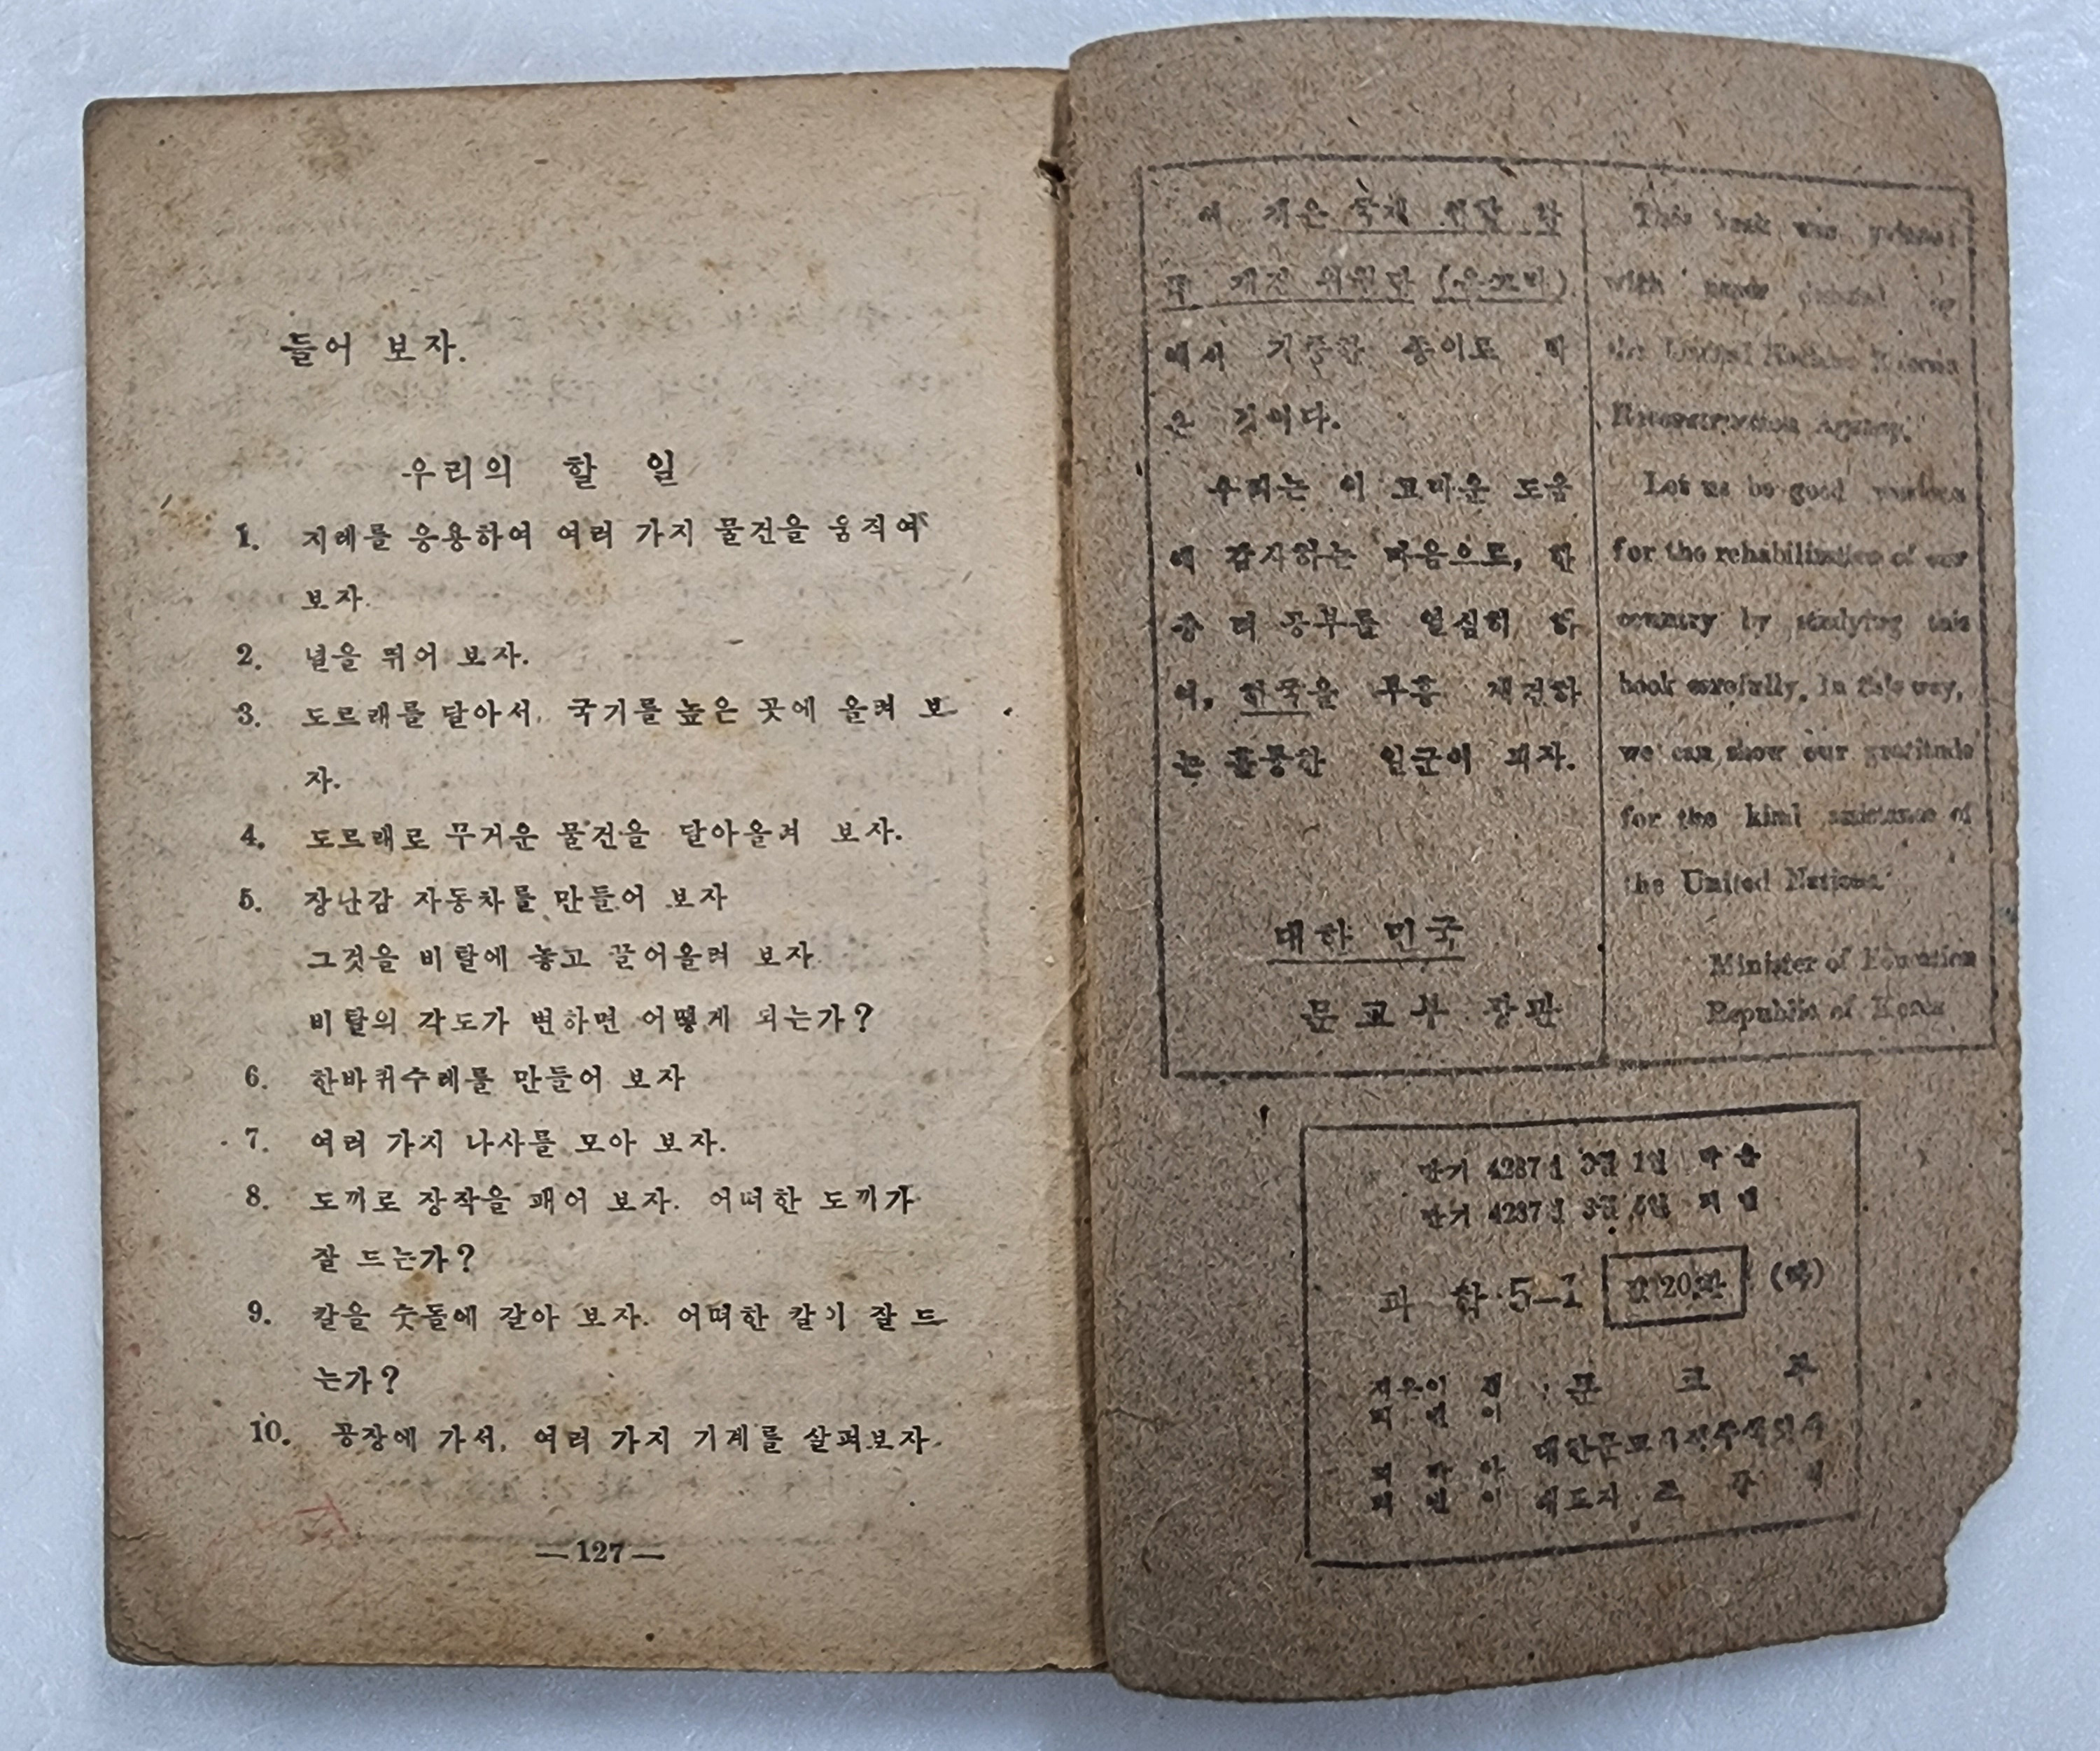 들어 보자.
우리의 할 일
1. 지레를 응용하여 여러 가지 물건을 움직여
보자.
2. 널을 뛰어 보자.
3. 도르래를 달아서, 국기를 높은 곳에 올려 보
자.
4. 도르래로 무거운 물건을 달아올려 보자.
5. 장난감 자동차를 만들어 보자
그것을 비탈에 놓고 끌어올려 보자
비탈의 각도가 변하면 어떻게 되는가?
6. 한바퀴수레를 만들어 보자
7. 여러 가지 나사를 모아 보자.
8. 도끼로 장작을 패어 보자. 어떠한 도끼가
잘 드는가?
9. 칼을 숫돌에 갈아 보자. 어떠한 칼이 잘 드
는가?
10. 공장에 가서, 여러 가지 기계를 살펴보자
—127—
이 책은 국제 연합 한
국 재건 위원단 (운끄라)
에서 기증한 종이로 박
은 것이다.
우리는 이 고마운 도움
에 감사하는 마음으로, 한
층 더 공부를 열심히 하
여, 한국을 부흥 재건하
는 훌륭한 일군이 되자.
대한 민국
문교부 장관
This book was printed
with paper donated by
the United Nations Korea
Reconstruction Agency.
Let us be good workers
for the rehabilitation of our
country by studying this
book carefully. In this way,
we can show our gratitude
for the kind assistance of
the United Nations.
Minister of Education
Republic of Korea
단기 4287년 3월 1일 박음
단기 4287년 3월 5일 펴냄
과 학 5—1 값 20환
지은이 겸 문 교 부
펴낸이
대한문교서적주식회사
펴낸이 대표자